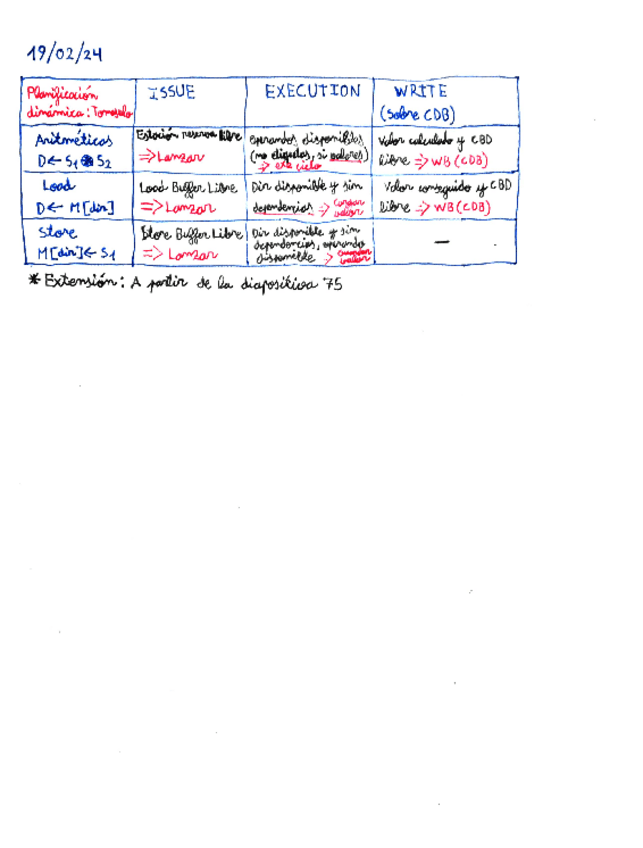 19/02/24
Planificación
dinámica: Tomasulo
ISSUE
EXECUTION
WRITE
(Sobre CDB)
Aritméticas
D ← S1 S2
Estación reserva libre
⇒ Lanzar
operandos disponibles
(no etiquetas, si valores)
⇒ exe ciclo
Valor calculado y CBD
libre ⇒ WB (CDB)
Load
D ← M[dir]
Load Buffer Libre
⇒ Lanzar
Dir disponible y sim
dependencias ⇒
valor
Valor conseguido y CBD
libre ⇒ WB (CDB)
Store
M[dir] ← S1
Store Buffer Libre
⇒ Lanzar
Dir disponible y sim
dependencias, operando
disponible ⇒
valor
—
* Extensión: A partir de la diapositiva 75